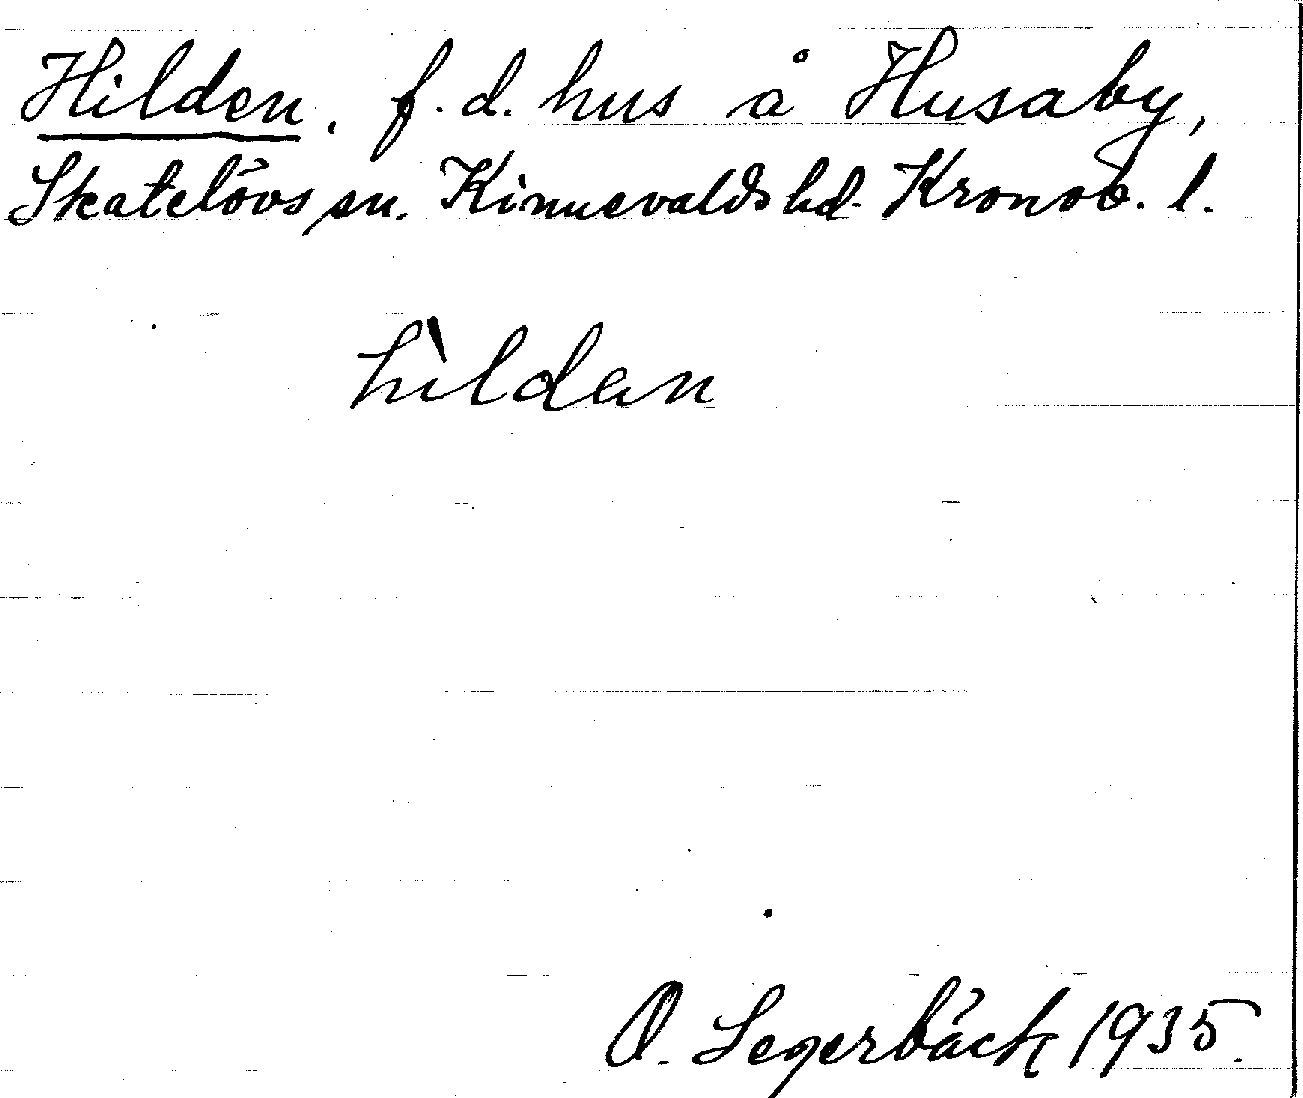 Hilden. f.d. hus å Husaby,
Skatelövs sn. Kinnevalds hd. Kronob. l.
hìldan
O. Segerbäck 1935.